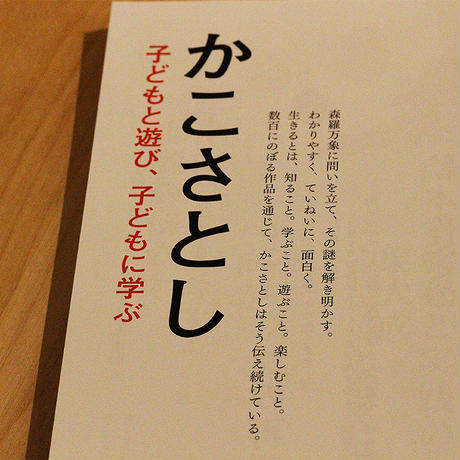 かこさとし
子どもと遊び、子どもに学ぶ
森羅万象に問いを立て、その謎を解き明かす。
わかりやすく、ていねいに、面白く。
生きるとは、知ること。学ぶこと。遊ぶこと。楽しむこと。
数百にのぼる作品を通じて、かこさとしはそう伝え続けている。